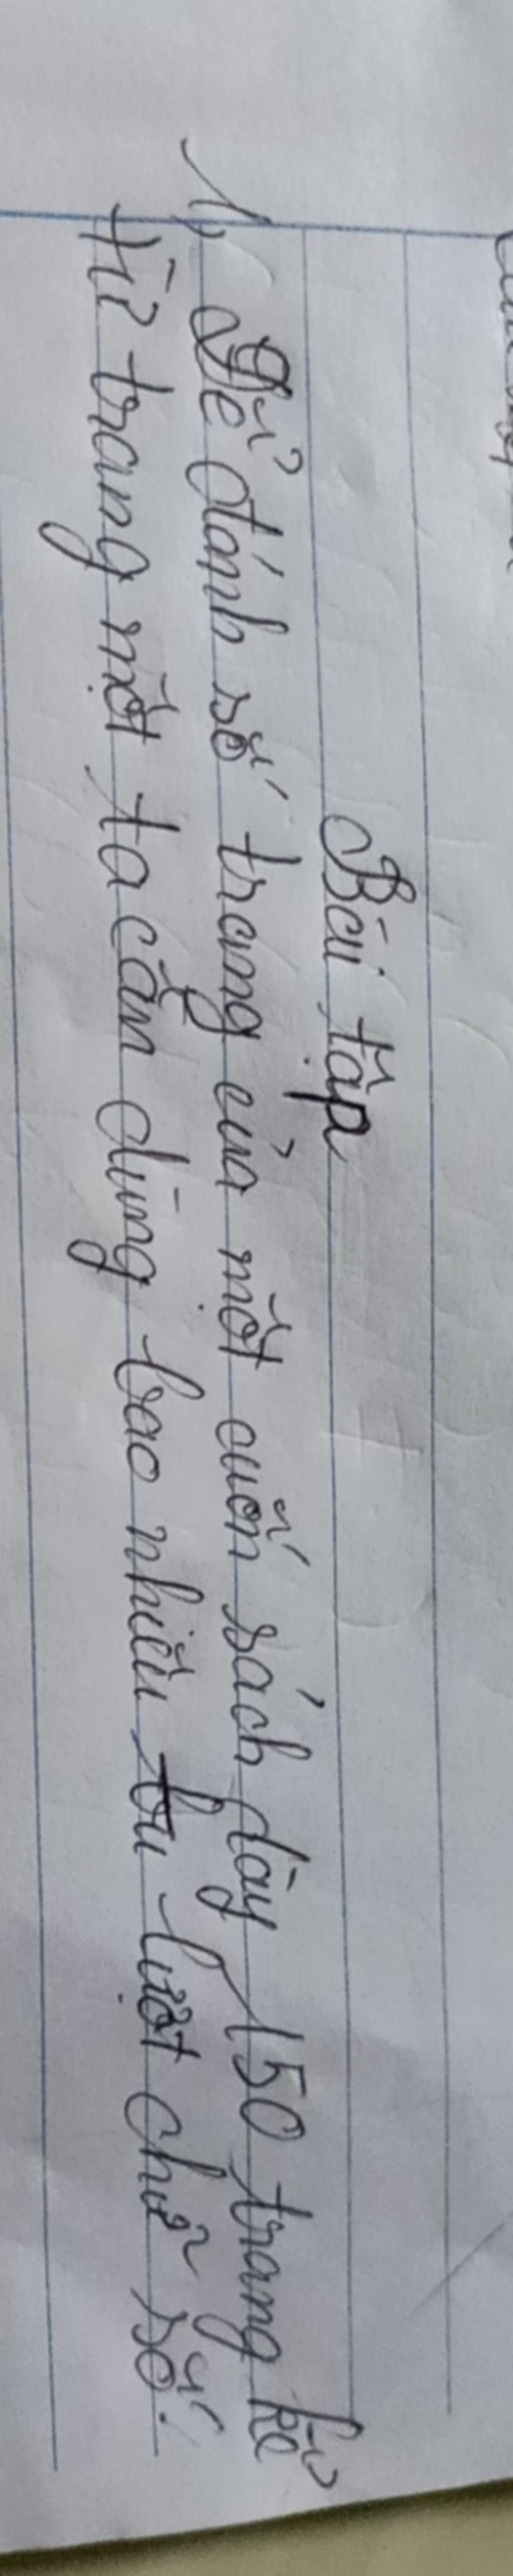 Bài tập
1, Để đánh số trang của một cuốn sách dày 150 trang kể
từ trang một, ta cần dùng bao nhiêu lượt chữ số?